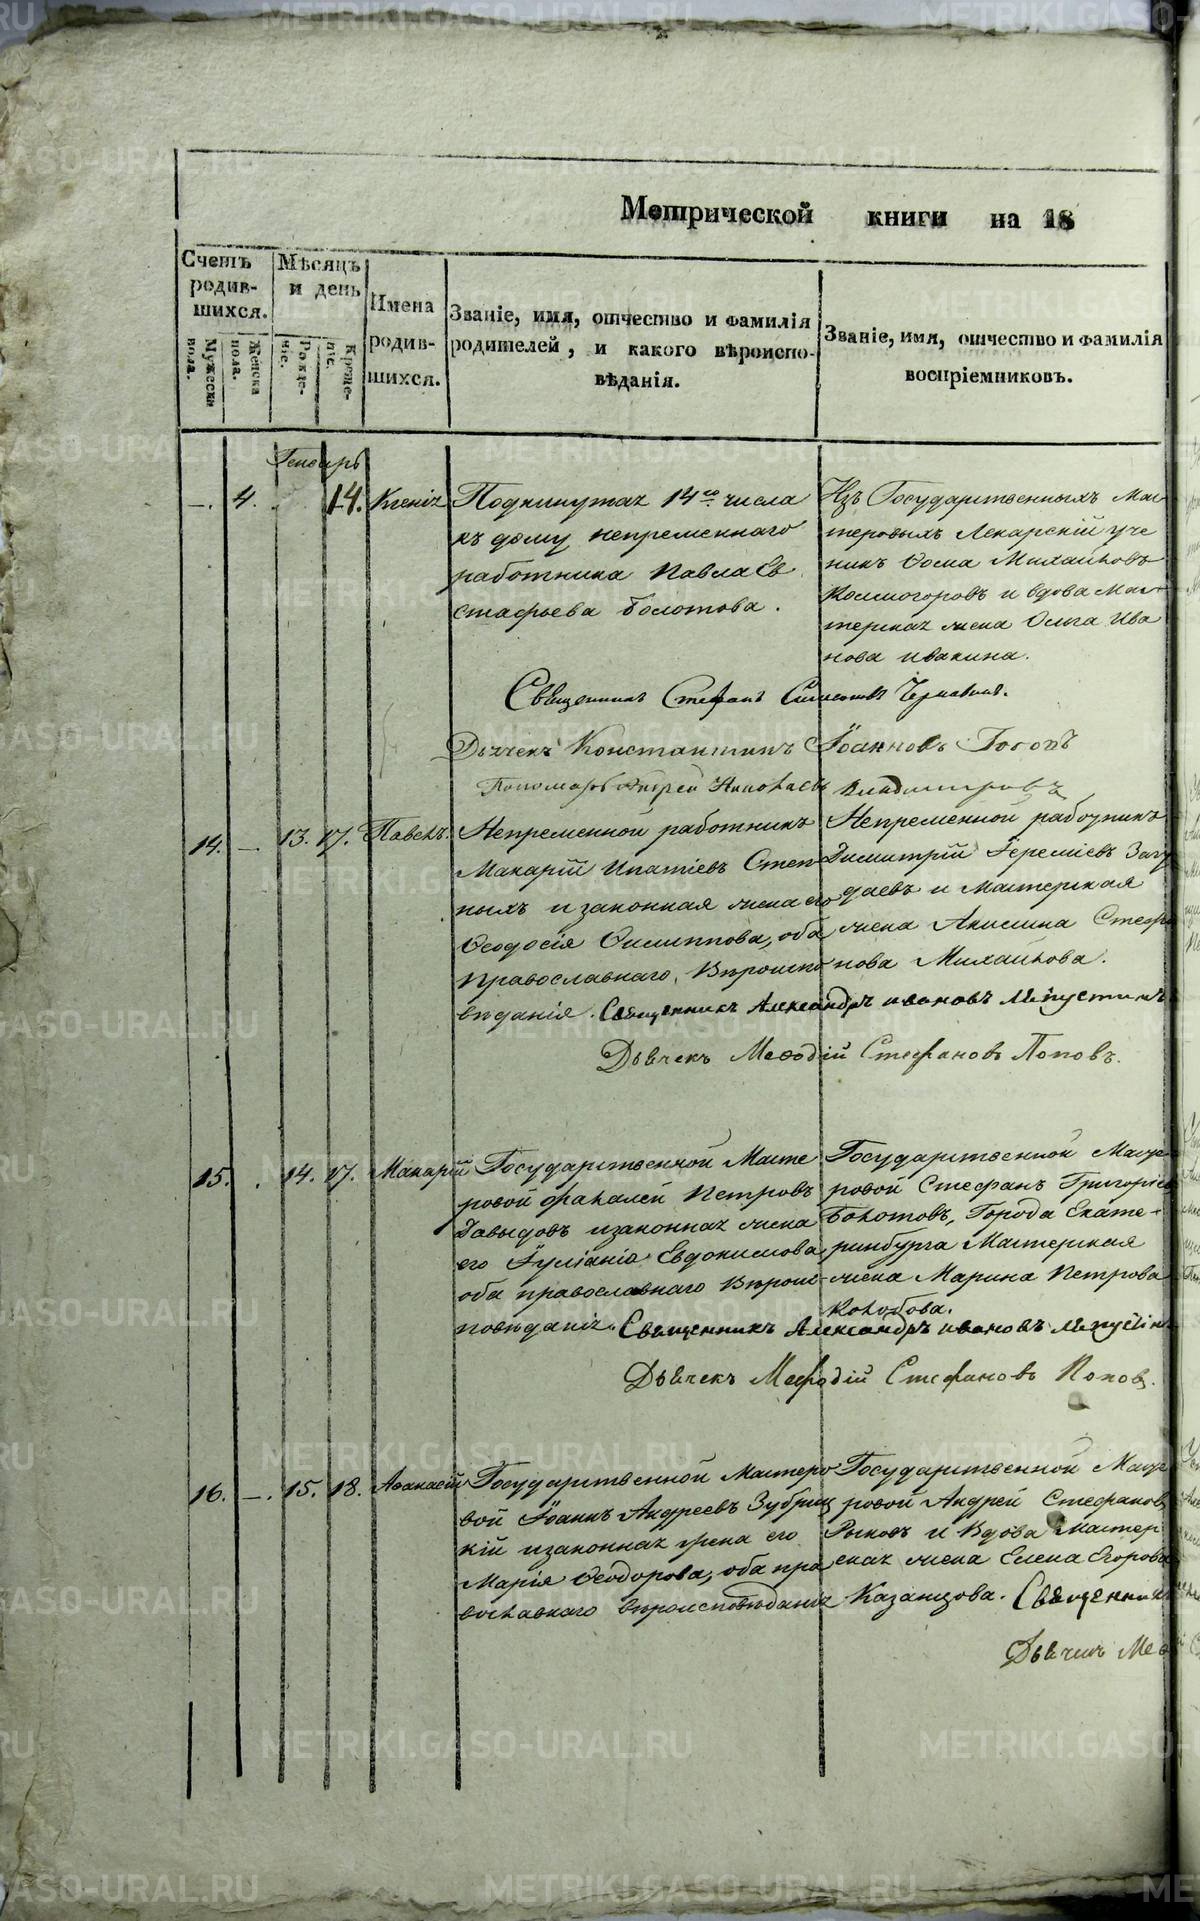 Метрической книги на 18
Счетъ родив-шихся.
Мужеска пола.
Женска пола.
Мѣсяцъ и день
Рожде-ніе.
Креще-ніе.
Имена родив-шихся.
Званіе, имя, отчество и фамилія
родителей, и какого вѣроиспо-
вѣданія.
Званіе, имя, отчество и фамилія
воспріемниковъ.
Генварь
—. 4. 14. Ксенія
Подкинутая 14го числа
къ дому непременнаго
работника Павла Ев
стафьева Болотова.
Изъ Государственныхъ Мас
теровыхъ Лекарскій уче
никъ Фома Михайловъ
Колмогоровъ и вдова Мас
терская жена Ольга Ива
нова Ивакина.
Священникъ Стефанъ
Дьячекъ Константинъ Іоанновъ Поповъ
Пономарь Андрей Николаевъ Владимировъ
14. — 13. 17. Павелъ.
Непременной работникъ
Макарій Ипатіевъ Степ
ныхъ и законная жена его
Феодосія Филиппова, оба
Православнаго Вероиспо
веданія.
Непременной работникъ
Димитрій Іереміевъ Загу
даевъ и Мастерская
жена Акилина Стефа
нова Михайлова.
Священникъ Александръ Ивановъ Лепустинъ
Дьячекъ Мефодій Стефановъ Поповъ.
15. . 14. 17. Макарій
Государственной Масте
ровой Фалалей Петровъ
Давыдовъ и законная жена
его Іуліанія Евдокимова
оба православнаго Вероис-
поведанія.
Государственной Масте
ровой Стефанъ Григоріев
Болотовъ, Города Екате-
ринбурга Мастерская
жена Марина Петрова
Колобова.
Священникъ Александръ Ивановъ Лепустин
Дьячекъ Мефодій Стефановъ Попов.
16. —. 15. 18. Афанасій
Государственной Мастеро
вой Іоаннъ Андреевъ Зубриц
кій и законная жена его
Марія Феодорова, оба пра
вославнаго вероисповеданія
Государственной Масте
ровой Андрей Стефанов
Рыковъ и Вдова Мастер
ская жена Елена Егорова
Казанцова. Священник
Дьячекъ Меф
METRIKI.GASO-URAL.RU